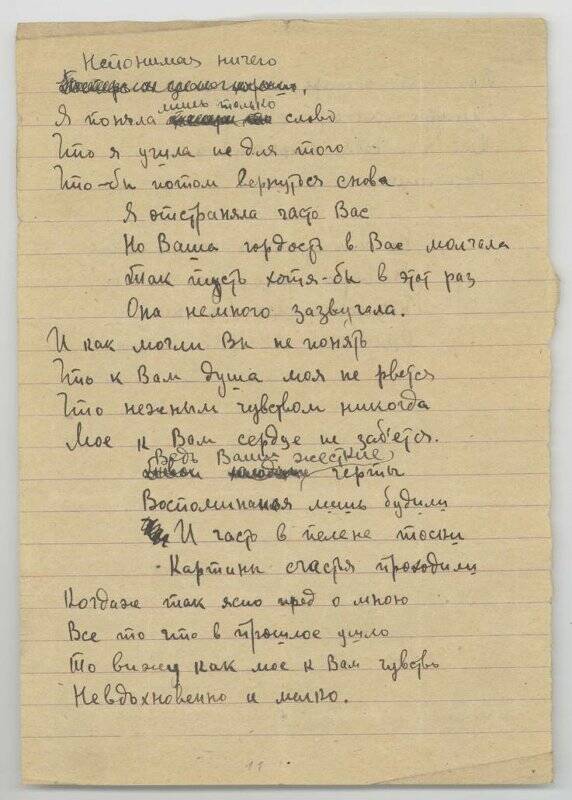 Непонимая ничего
Я поняла лишь только слово
Что я ушла не для того
Что-бы потом вернуться снова
Я отстраняла часто Вас
Но Ваша гордость в Вас молчала
Так пусть хотя-бы в этот раз
Она немного зазвучала.
И как могли Вы не понять
Что к Вам душа моя не рвется
Что нежным чувством никогда
Мое к Вам сердце не заб'ется.
Ведь Ваши жесткие
черты
Воспоминанья лишь будили
И часто в пелене тоски
Картины счастья проходили
Когдаже так ясно пред о мною
Все то что в прошлое ушло
То вижу как мое к Вам чувство
Невдохновенно и мелко.
11